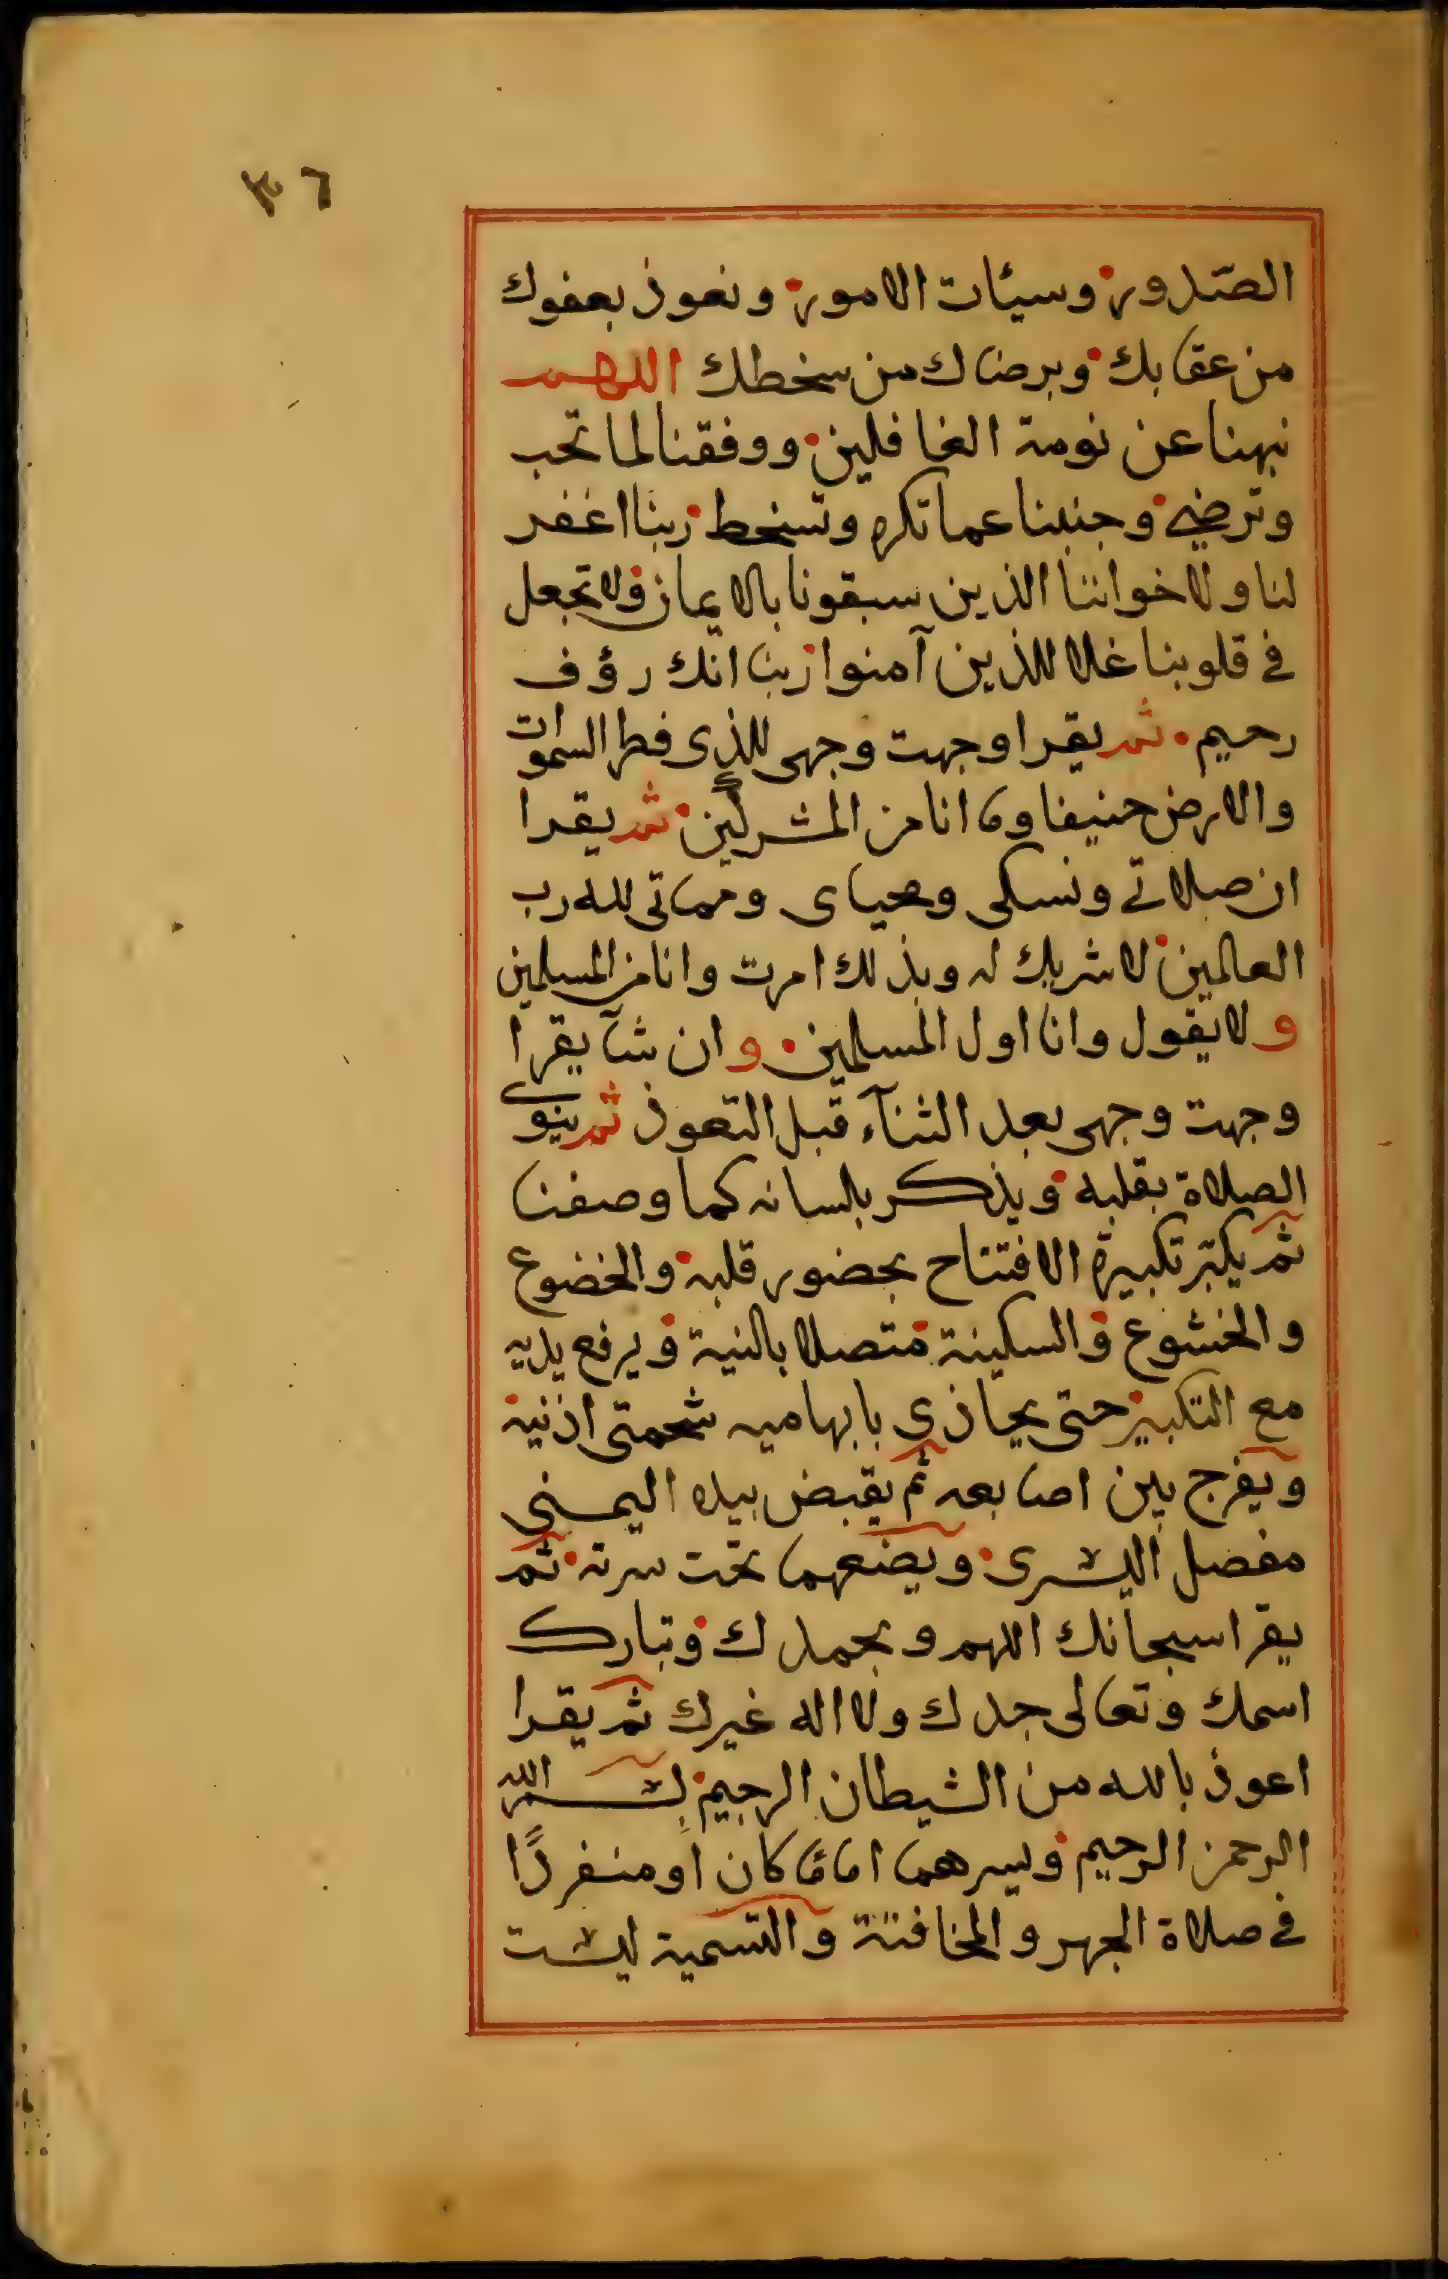 ٣٦
الصّدور وسيئات الامور ونعوذ بعفوك
من عقابك وبرضاك من سخطك اللهم
نبهنا عن نومة الغافلين ووفقنا لما تحب
وترضى وجنبنا عما تكره وتسخط ربنا اغفر
لنا ولاخواننا الذين سبقونا بالايمان ولا تجعل
في قلوبنا غلا للذين آمنوا ربنا انك رؤف
رحيم ثم يقرا وجهت وجهى للذى فطر السموات
والارض حنيفا وما انا من المشركين ثم يقرا
ان صلاتي ونسكى ومحياى ومماتى لله رب
العالمين لا شريك له وبذلك امرت وانا من المسلمين
ولا يقول وانا اول المسلمين وان شآ يقرا
وجهت وجهى بعد الثنآء قبل التعوذ ثم ينوى
الصلاة بقلبه ويذكر بلسانه كما وصفنا
ثم يكبّر تكبيرة الافتتاح بحضور قلبه والخضوع
والخشوع والسكينة متصلا بالنية ويرفع يديه
مع التكبير حتى يحاذي بابهاميه شحمتى اذنيه
ويفرج بين اصابعه ثم يقبض بيده اليمنى
مفصل اليسرى ويضعهما تحت سرته ثم
يقرا سبحانك اللهم وبحمدك وتبارك
اسمك وتعالى جدك ولا اله غيرك ثم يقرا
اعوذ بالله من الشيطان الرجيم بسم الله
الرحمن الرحيم ويسرهما اماما كان او منفردًا
في صلاة الجهر والمخافتة والتسمية ليست